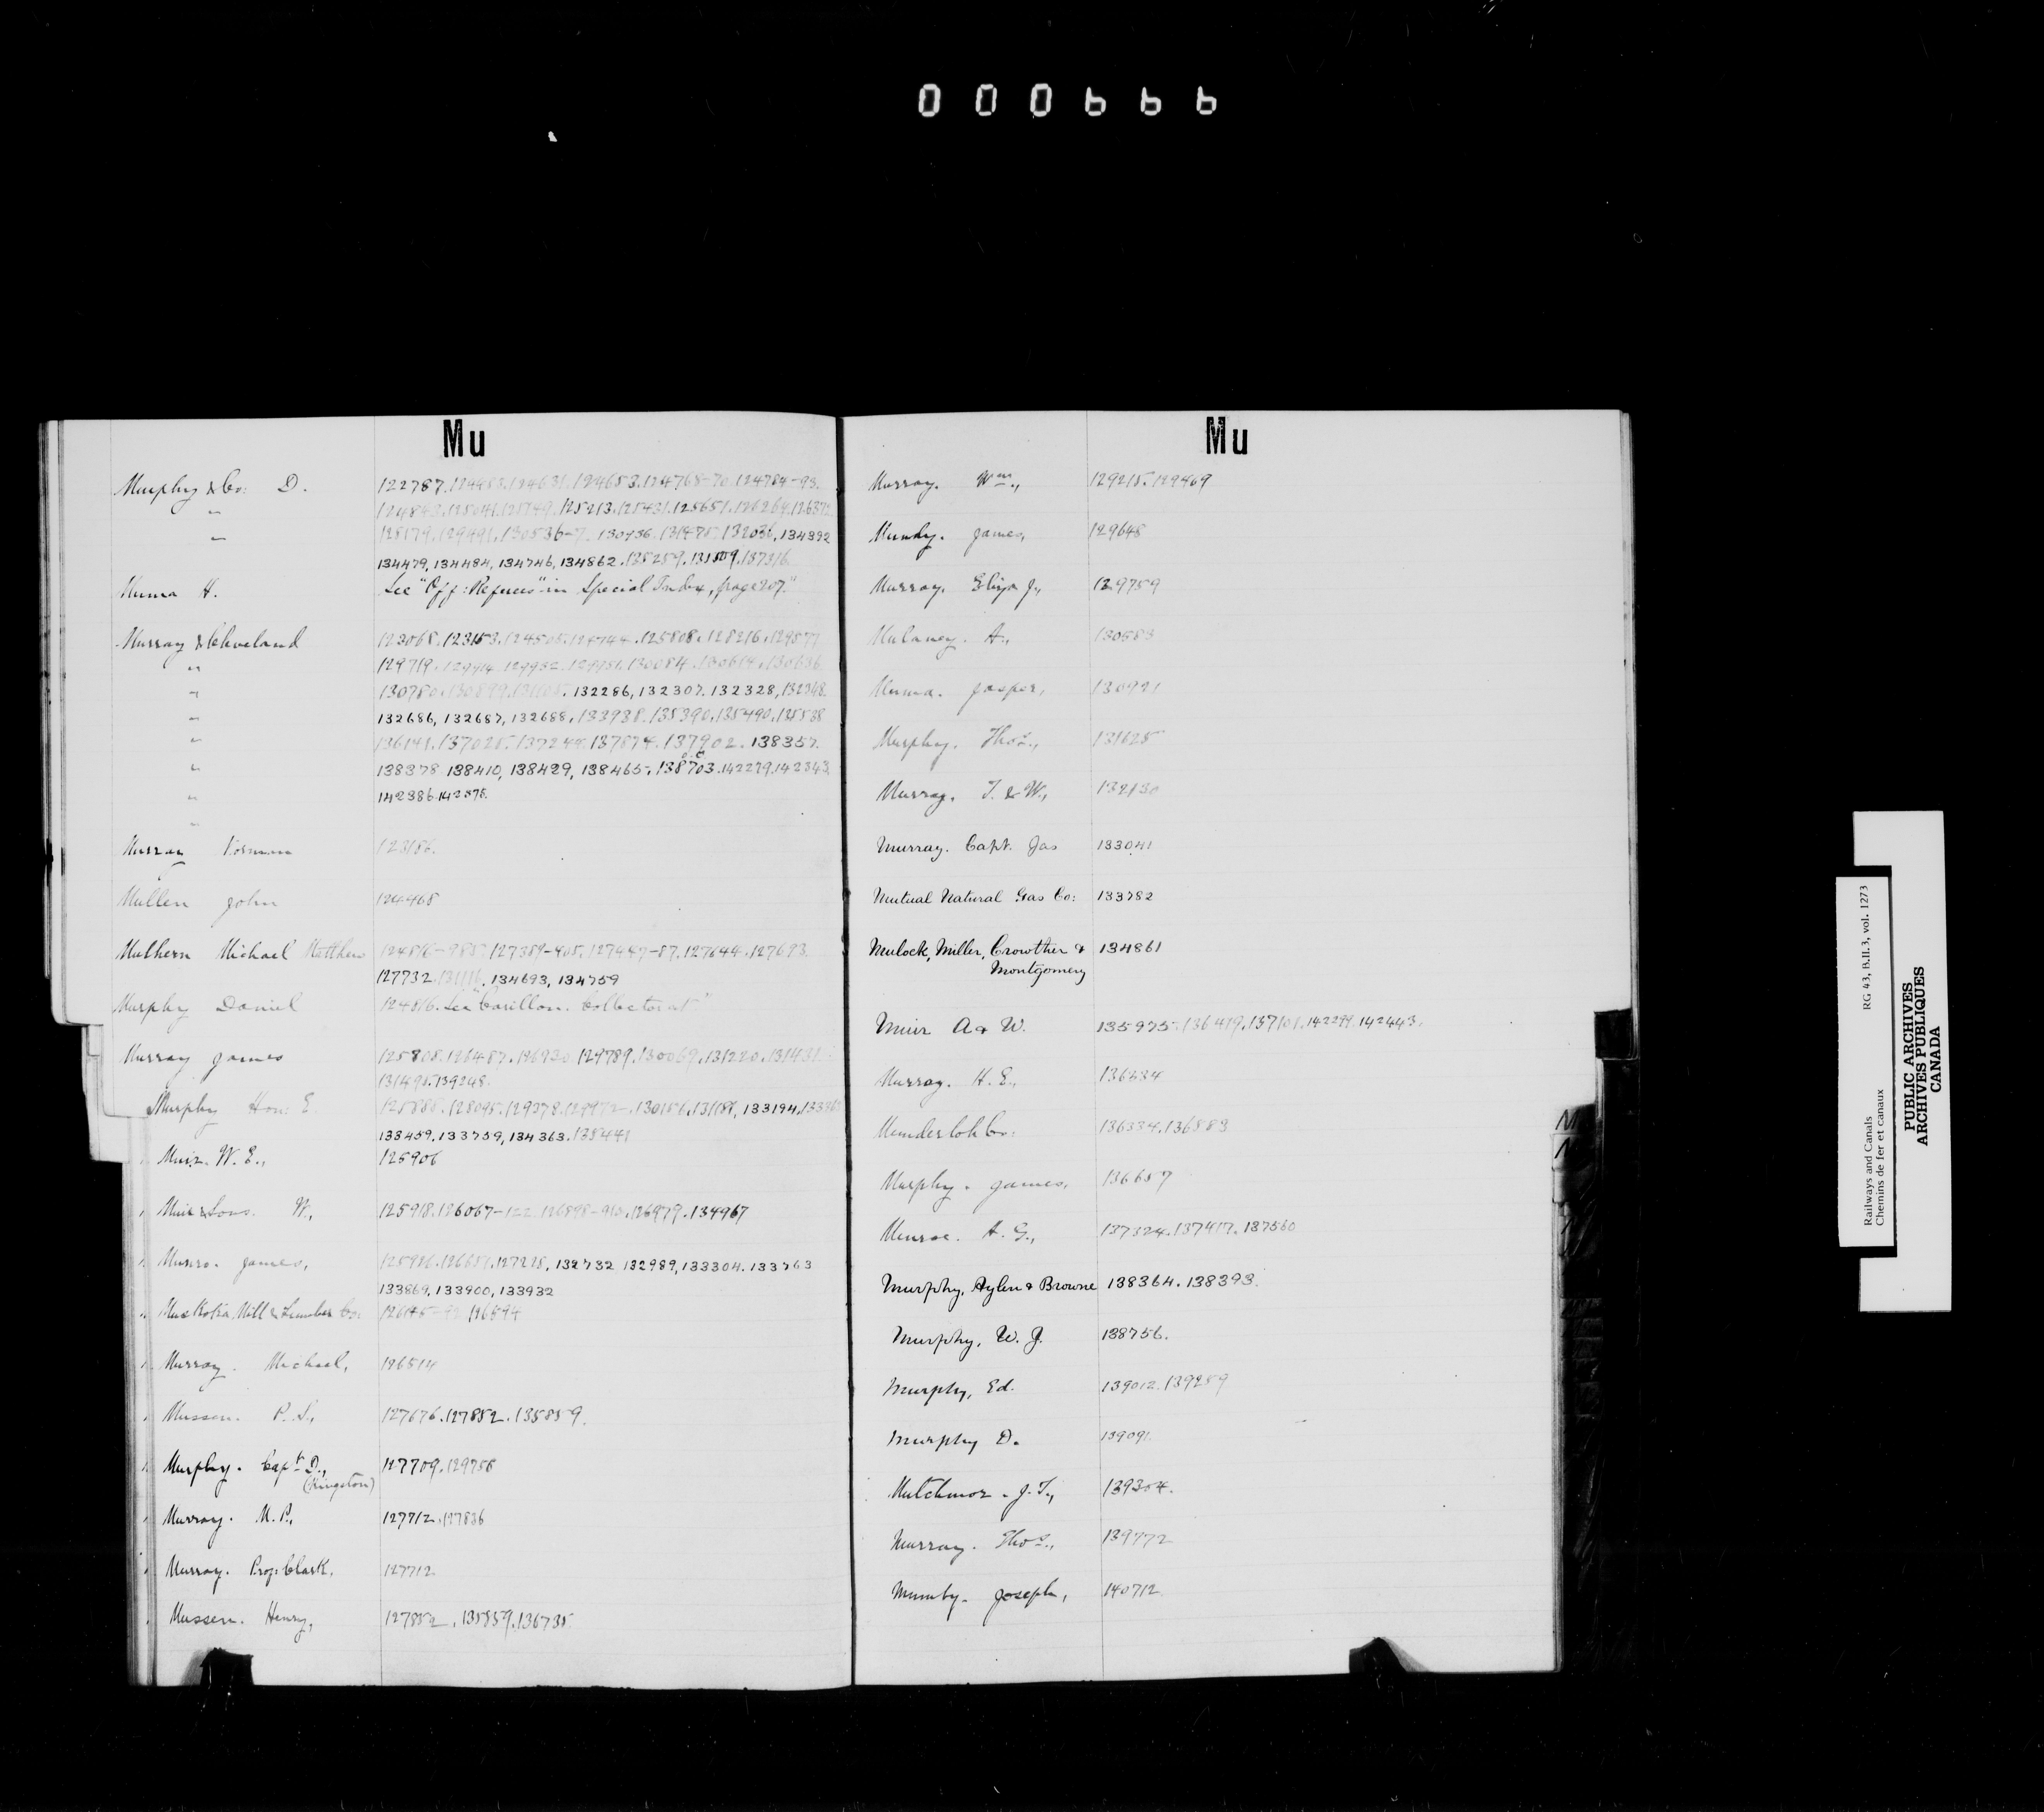 000666
Mu
Murphy & Co: D. 122787. 124653. 124768-70. 124784-93.
" 125213. 125431. 125651. 126264. 126372
" 128179. 129491. 130536-7. 130956. 131475. 132036, 134392
134479, 134484, 134746, 134862. 135259. 137316
Muma H. See "Off: Refuces" in Special Index, page 207."
Murray & Cleveland 123068. 123153. 124505. 124744. 125808. 128216. 129577
" 129719. 129914. 129932. 130084. 130614. 130636
" 130780. 130899. 132286, 132307. 132328, 132348.
" 132686, 132687, 132688, 133938. 135390. 135490. 135538
" 136141. 137025. 137244. 137874. 137902. 138357.
" 138378 138410, 138429, 138465, 138703. 142279. 142343
" 142386. 142378.
"
Murray Norman 123186.
Mullen John 124468
Mulhern Michael Matthew 127389-405. 127447-87. 127644. 127693.
127732. 131116. 134693, 134759
Murphy Daniel 124816. See "Carillon. Collector at"
Murray James 125808. 126487. 126930 129789. 130069. 131220. 131431
131495. 139248.
Murphy Hon: E. 125888. 128095. 129378. 129972. 130156. 131189, 133194.
133459, 133759, 134363. 138441
Muir. W. E., 125906
Muir & Sons. W., 125918. 126067-122. 126898-913. 126979. 134967
Munro. James, 125926. 126651. 127228, 132732 132989, 133304. 133763
133869, 133900, 133932
Muskoka Mill & Lumber Co: 126594
Murray. Michael, 126514
Mussen. P. S., 127676. 127852. 135859.
Murphy. Capt. D., 127709. 129758
(Kingston)
Murray. M. P., 127712. 127836
Murray. Prof: Clark. 127712
Mussen. Henry, 127852. 135859. 136735
Mu
Murray. Wm., 129215. 129469
Mundy. James, 129648
Murray. Eliza J., 129759
Mulaney. A., 130583
Muma. Jasper, 130921
Murphy. Thos., 131625
Murray. T. & W., 132130
Murray. Capt. Jas 133041
Mutual Natural Gas Co: 133782
Mulock, Miller, Crowther & 134861
Montgomery
Muir A & W. 135975. 136419. 137101. 142299. 142443.
Murray. H. E., 136334
Munderloh Co: 136334. 136583
Murphy. James, 136657
Munroe. A. G., 137324. 137417. 137560
Murphy, Aylen & Browne 138364. 138393.
Murphy, W. J. 138756.
Murphy, Ed. 139012. 139259
Murphy D. 139091.
Mutchmor. J. T., 139304.
Murray. Thos., 139772
Mumby. Joseph, 140712.
Railways and Canals RG 43, B.II.3, vol. 1273
Chemins de fer et canaux
PUBLIC ARCHIVES
ARCHIVES PUBLIQUES
CANADA